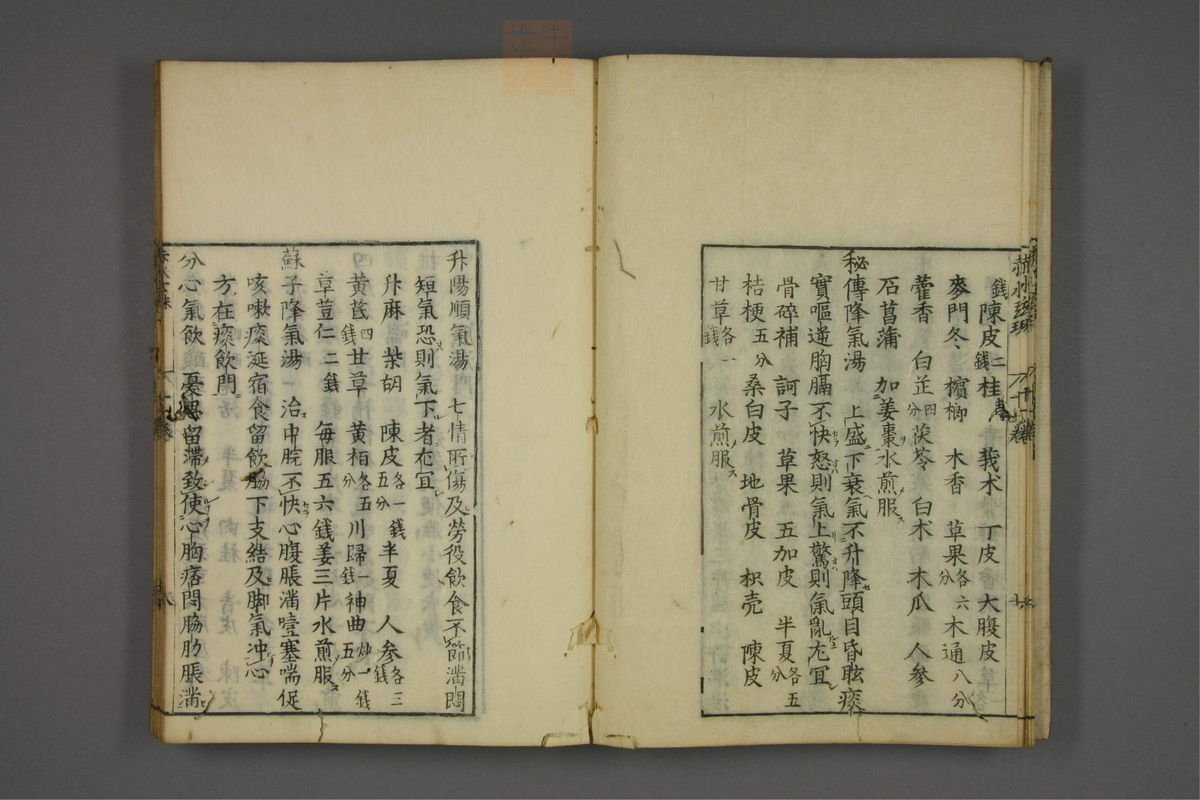 錢陳皮二錢桂 莪朮 丁皮 大腹皮
麥門冬 檳榔 木香 草果各六分木通八分
藿香 白芷四分茯苓 白朮 木瓜 人參
石菖蒲 加姜棗水煎服
秘傳降氣湯 上盛下衰氣不升降頭目昏眩痰
實嘔逆胸膈不快怒則氣上驚則氣亂尤宜
骨碎補 訶子 草果 五加皮 半夏各五分
桔梗五分 桑白皮 地骨皮 枳壳 陳皮
甘草各一錢 水煎服
升陽順氣湯 七情所傷及勞役飲食不節滿悶
短氣恐則氣下者尤宜
升麻 柴胡 陳皮各一錢五分半夏 人參各三錢
黃芪四錢甘草 黃栢各五分川歸一錢神曲炒一錢五分
草荳仁二錢 每服五六錢姜三片水煎服
蘇子降氣湯 治中脘不快心腹脹滿噎塞喘促
咳嗽痰涎宿食留飲脇下支結及脚氣冲心
方在痰飲門
分心氣飲 憂 留滯致使心胸痞悶脇肋脹滿